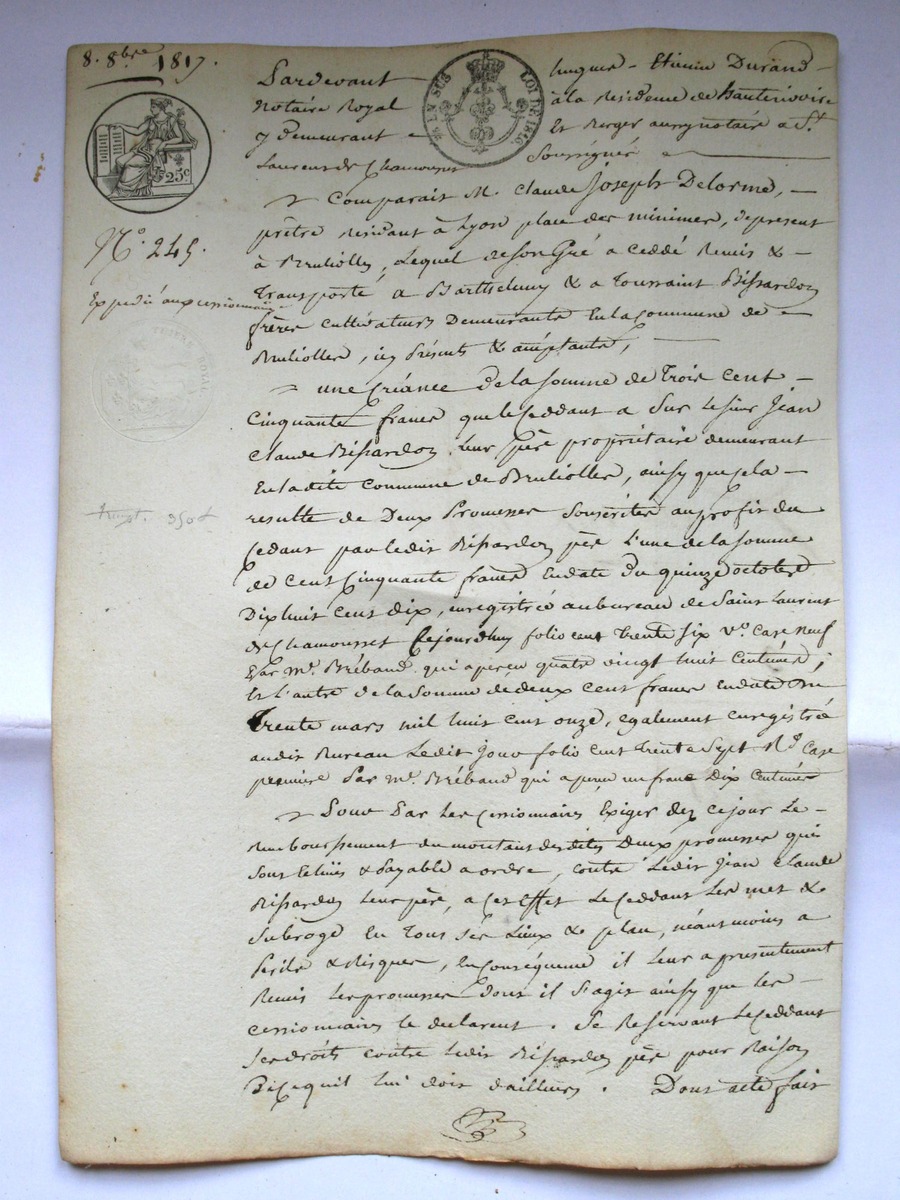 8. 8bre 1817.
Pardevant hugues - Etienne Durand -
Notaire Royal à la Residence de hauterivoire
y demeurant Et Berger aussy notaire a St
Laurent de Chamousset Soussignés
EN SUS
LOI DE 1816
25c
Comparait M. Claude Joseph Delorme, -
prêtre Residant à Lyon place des minimes, depresent
N°. 245.
à Brulioller, Lequel deson Gré a ceddé Remis & -
Transporté a Barthelemy & a Toussaint Bissardon
Expedié aux cessionnaires
frères cultivateurs Demeurants En la Commune de -
TIMBRE ROYAL
Brulioller, icy Présents & acceptants,
une Créance de la somme de Trois cent -
Cinquante francs que le Ceddant a Sur le sieur Jean
Claude Bissardon Leur père propriétaire demeurant
En la dite Commune de Brulioller, ainsy que cela -
350
resulte de Deux Promesses Souscrites au profit du
Cedant par ledit Bissardon père L'une de la somme
de Cent Cinquante francs En date du quinze octobre
Dix huit cent dix, enregistrée au bureau de Saint Laurent
de Chamousset Cejourdhuy folio cent Trente six V° Case neuf
Par Mr. Brébaud qui a perçu quatre vingt huit Centimes ;
Et L'autre de la Somme de deux Cent francs En date du
Trente mars mil huit cent onze, egalement enregistrée
audit Bureau Ledit Jour folio cent trente Sept R° Case
premiere Par Mr. Brébaud qui a perçu un franc Dix Centimes
Pour Par les Cessionnaires Exiger dez ce jour Le -
Remboursement du montant desdites Deux promesses qui
Sont Echües & Payable a ordre, contre Ledit Jean Claude
Bissardon Leur père, a Cet Effet Le Ceddant Les met &
Subroge En Tous Ses Lieux & place, néantmoins a
Perils & Risques, En Conséquence il leur a presentement
Remis Les promesses Dont il s'agit ainsy que les -
cessionnaires le declarent. Se Reservant Le Ceddant
Ses droits contre ledit Bissardon père pour Raison
De Ce quil lui doit d'ailleurs. Dont acte fait